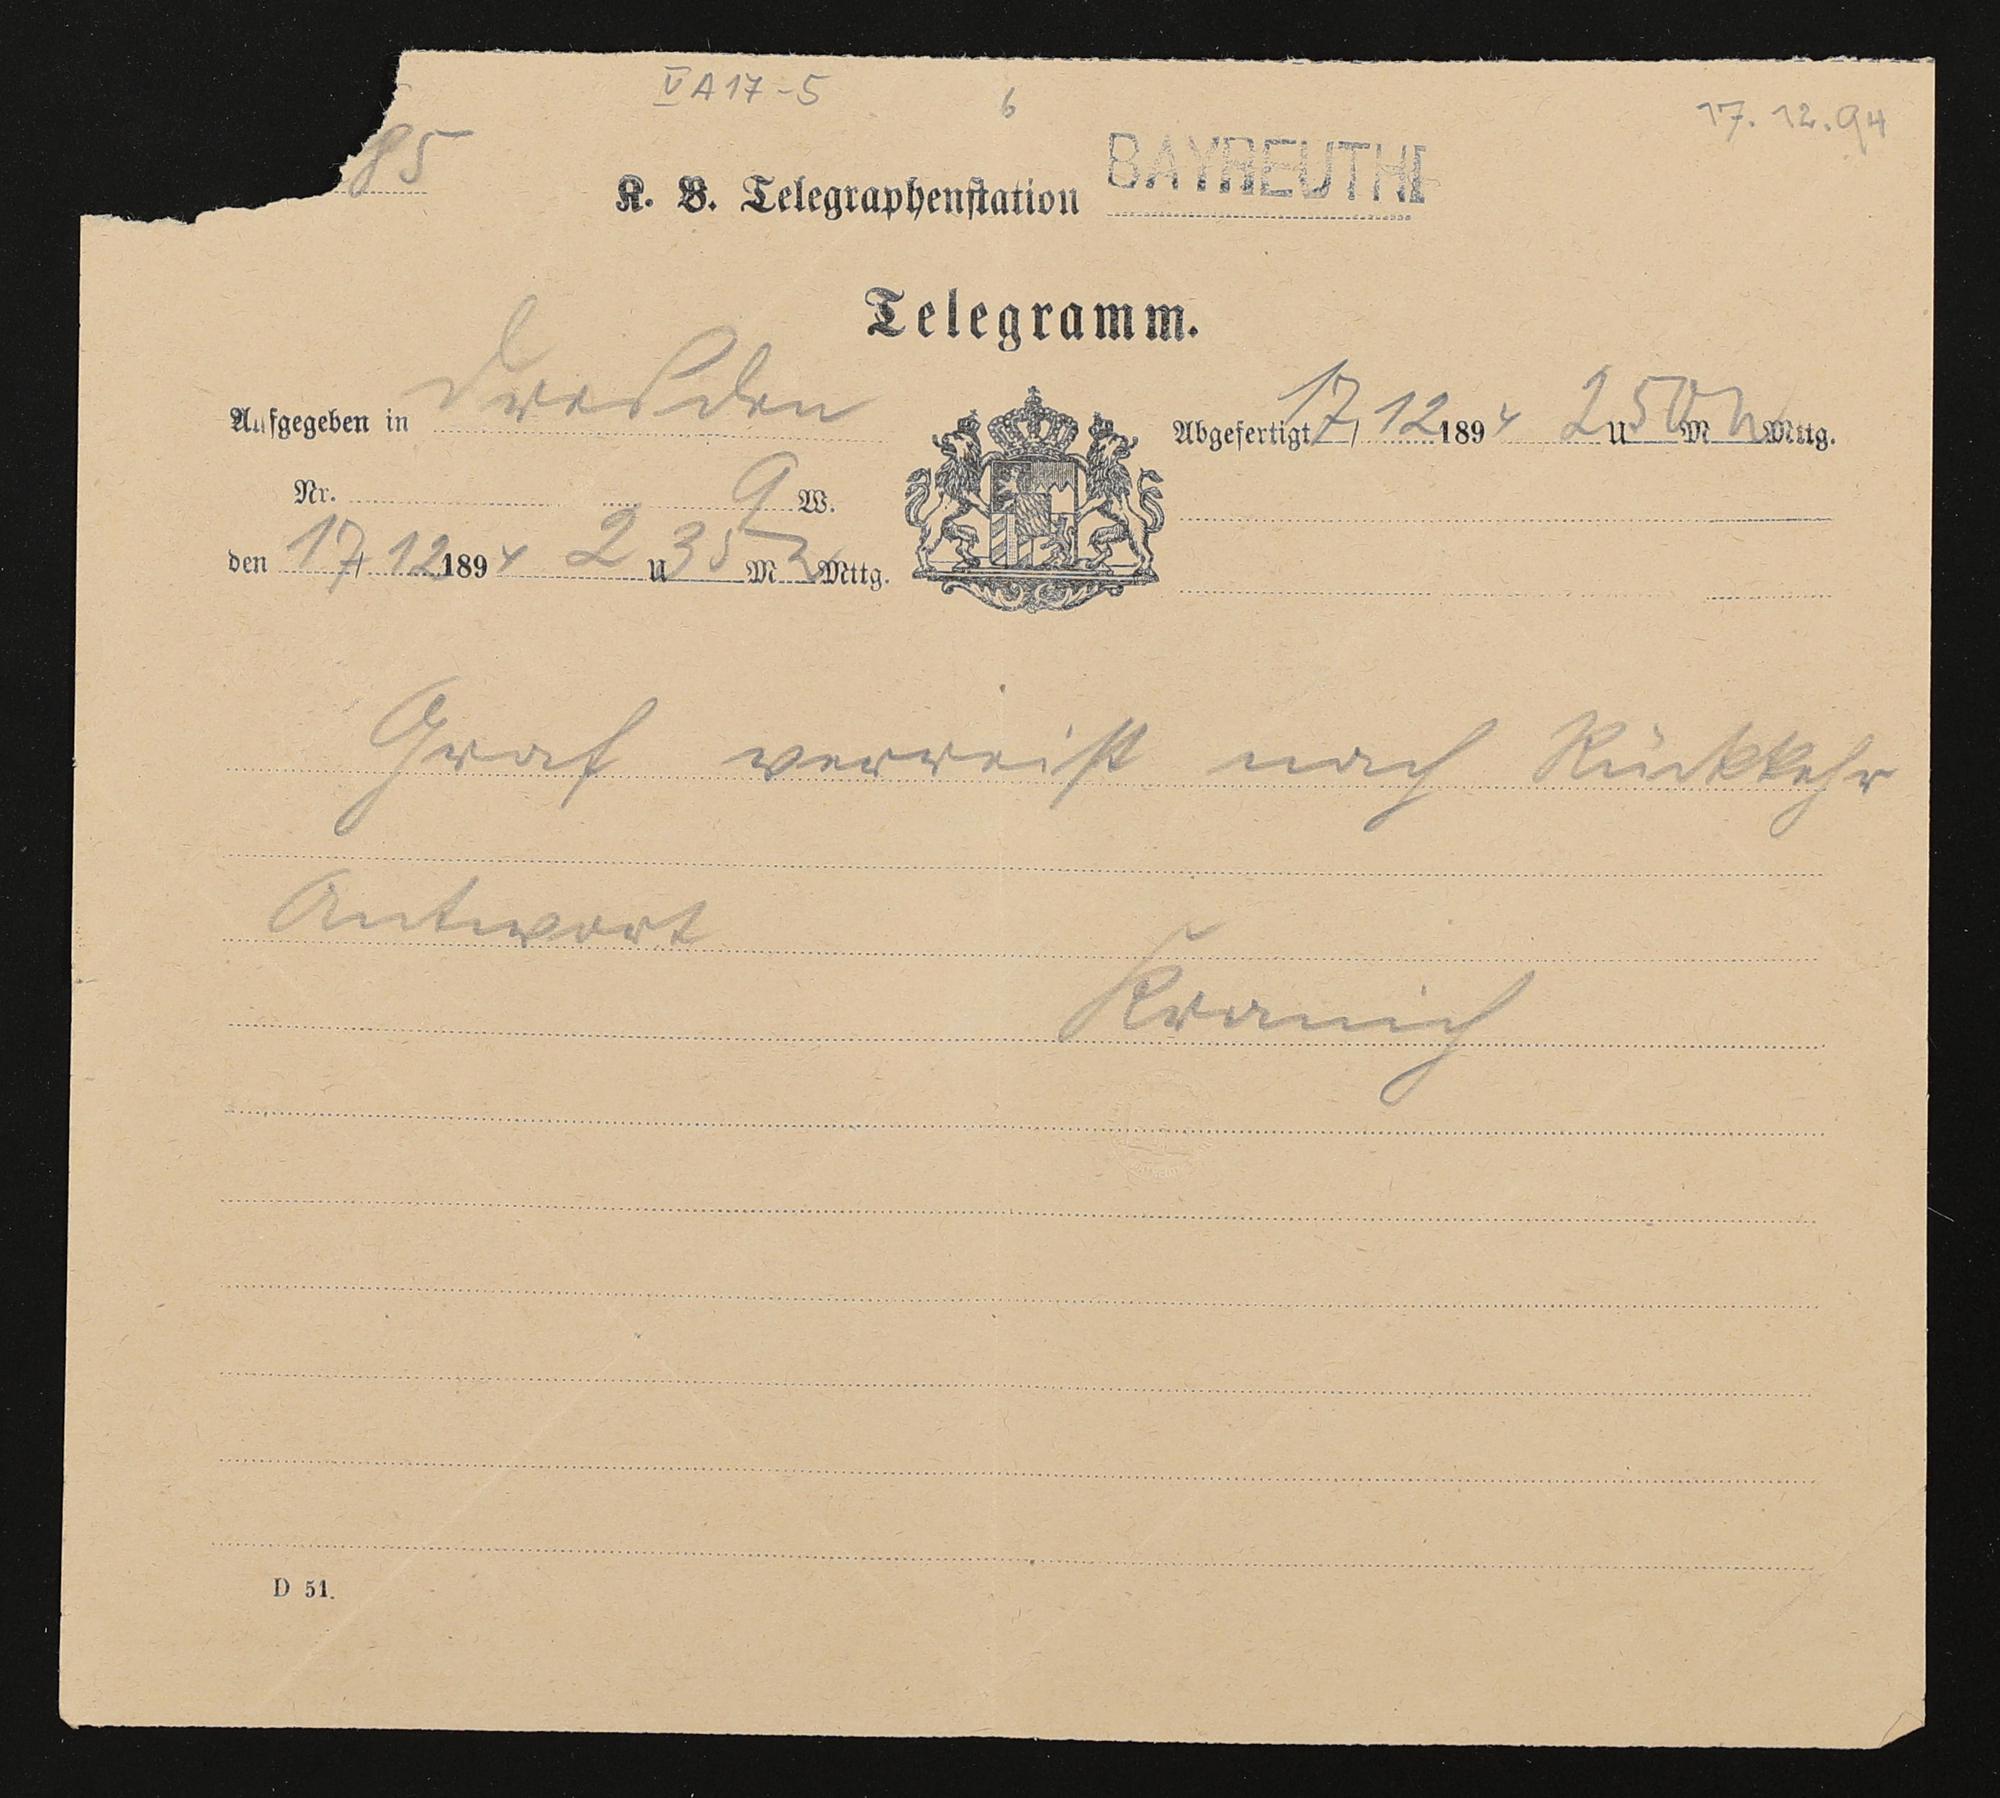 V A 17-5
6
17.12.94
85
K. B. Telegraphenstation BAYREUTH
Telegramm.
Aufgegeben in Dresden
Abgefertigt 17/12 1894 2 U 50 M N Mttg.
Nr. 9 W.
den 17/12 1894 2 U 35 M N Mttg.
Graf verreist nach Rückkehr
Antwort
Kranich
D 51.